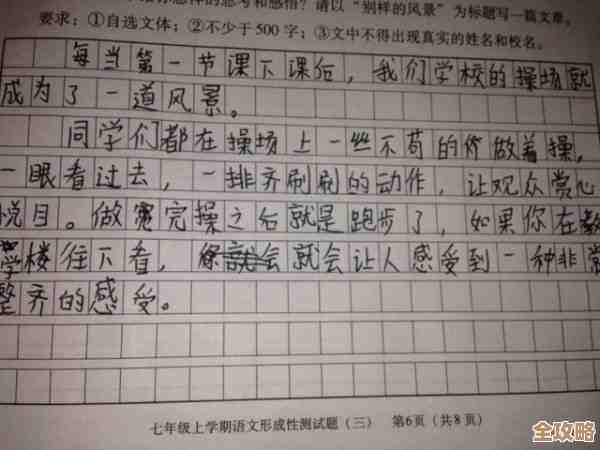 思考和感悟？请以“别样的风景”为标题写一篇文章。
要求：①自选文体；②不少于500字；③文中不得出现真实的姓名和校名。
每当第一节课下课后，我们学校的操场就
成为了一道风景。
同学们都在操场上一丝不苟的做着操，
一眼看过去，一排齐刷刷的动作，让观众赏心
悦目。做完操之后就是跑步了，如果你在教
学楼往下看，就会让人感受到一种非常
整齐的感受。
七年级上学期语文形成性测试题（三） 第6页（共8页）
全攻略